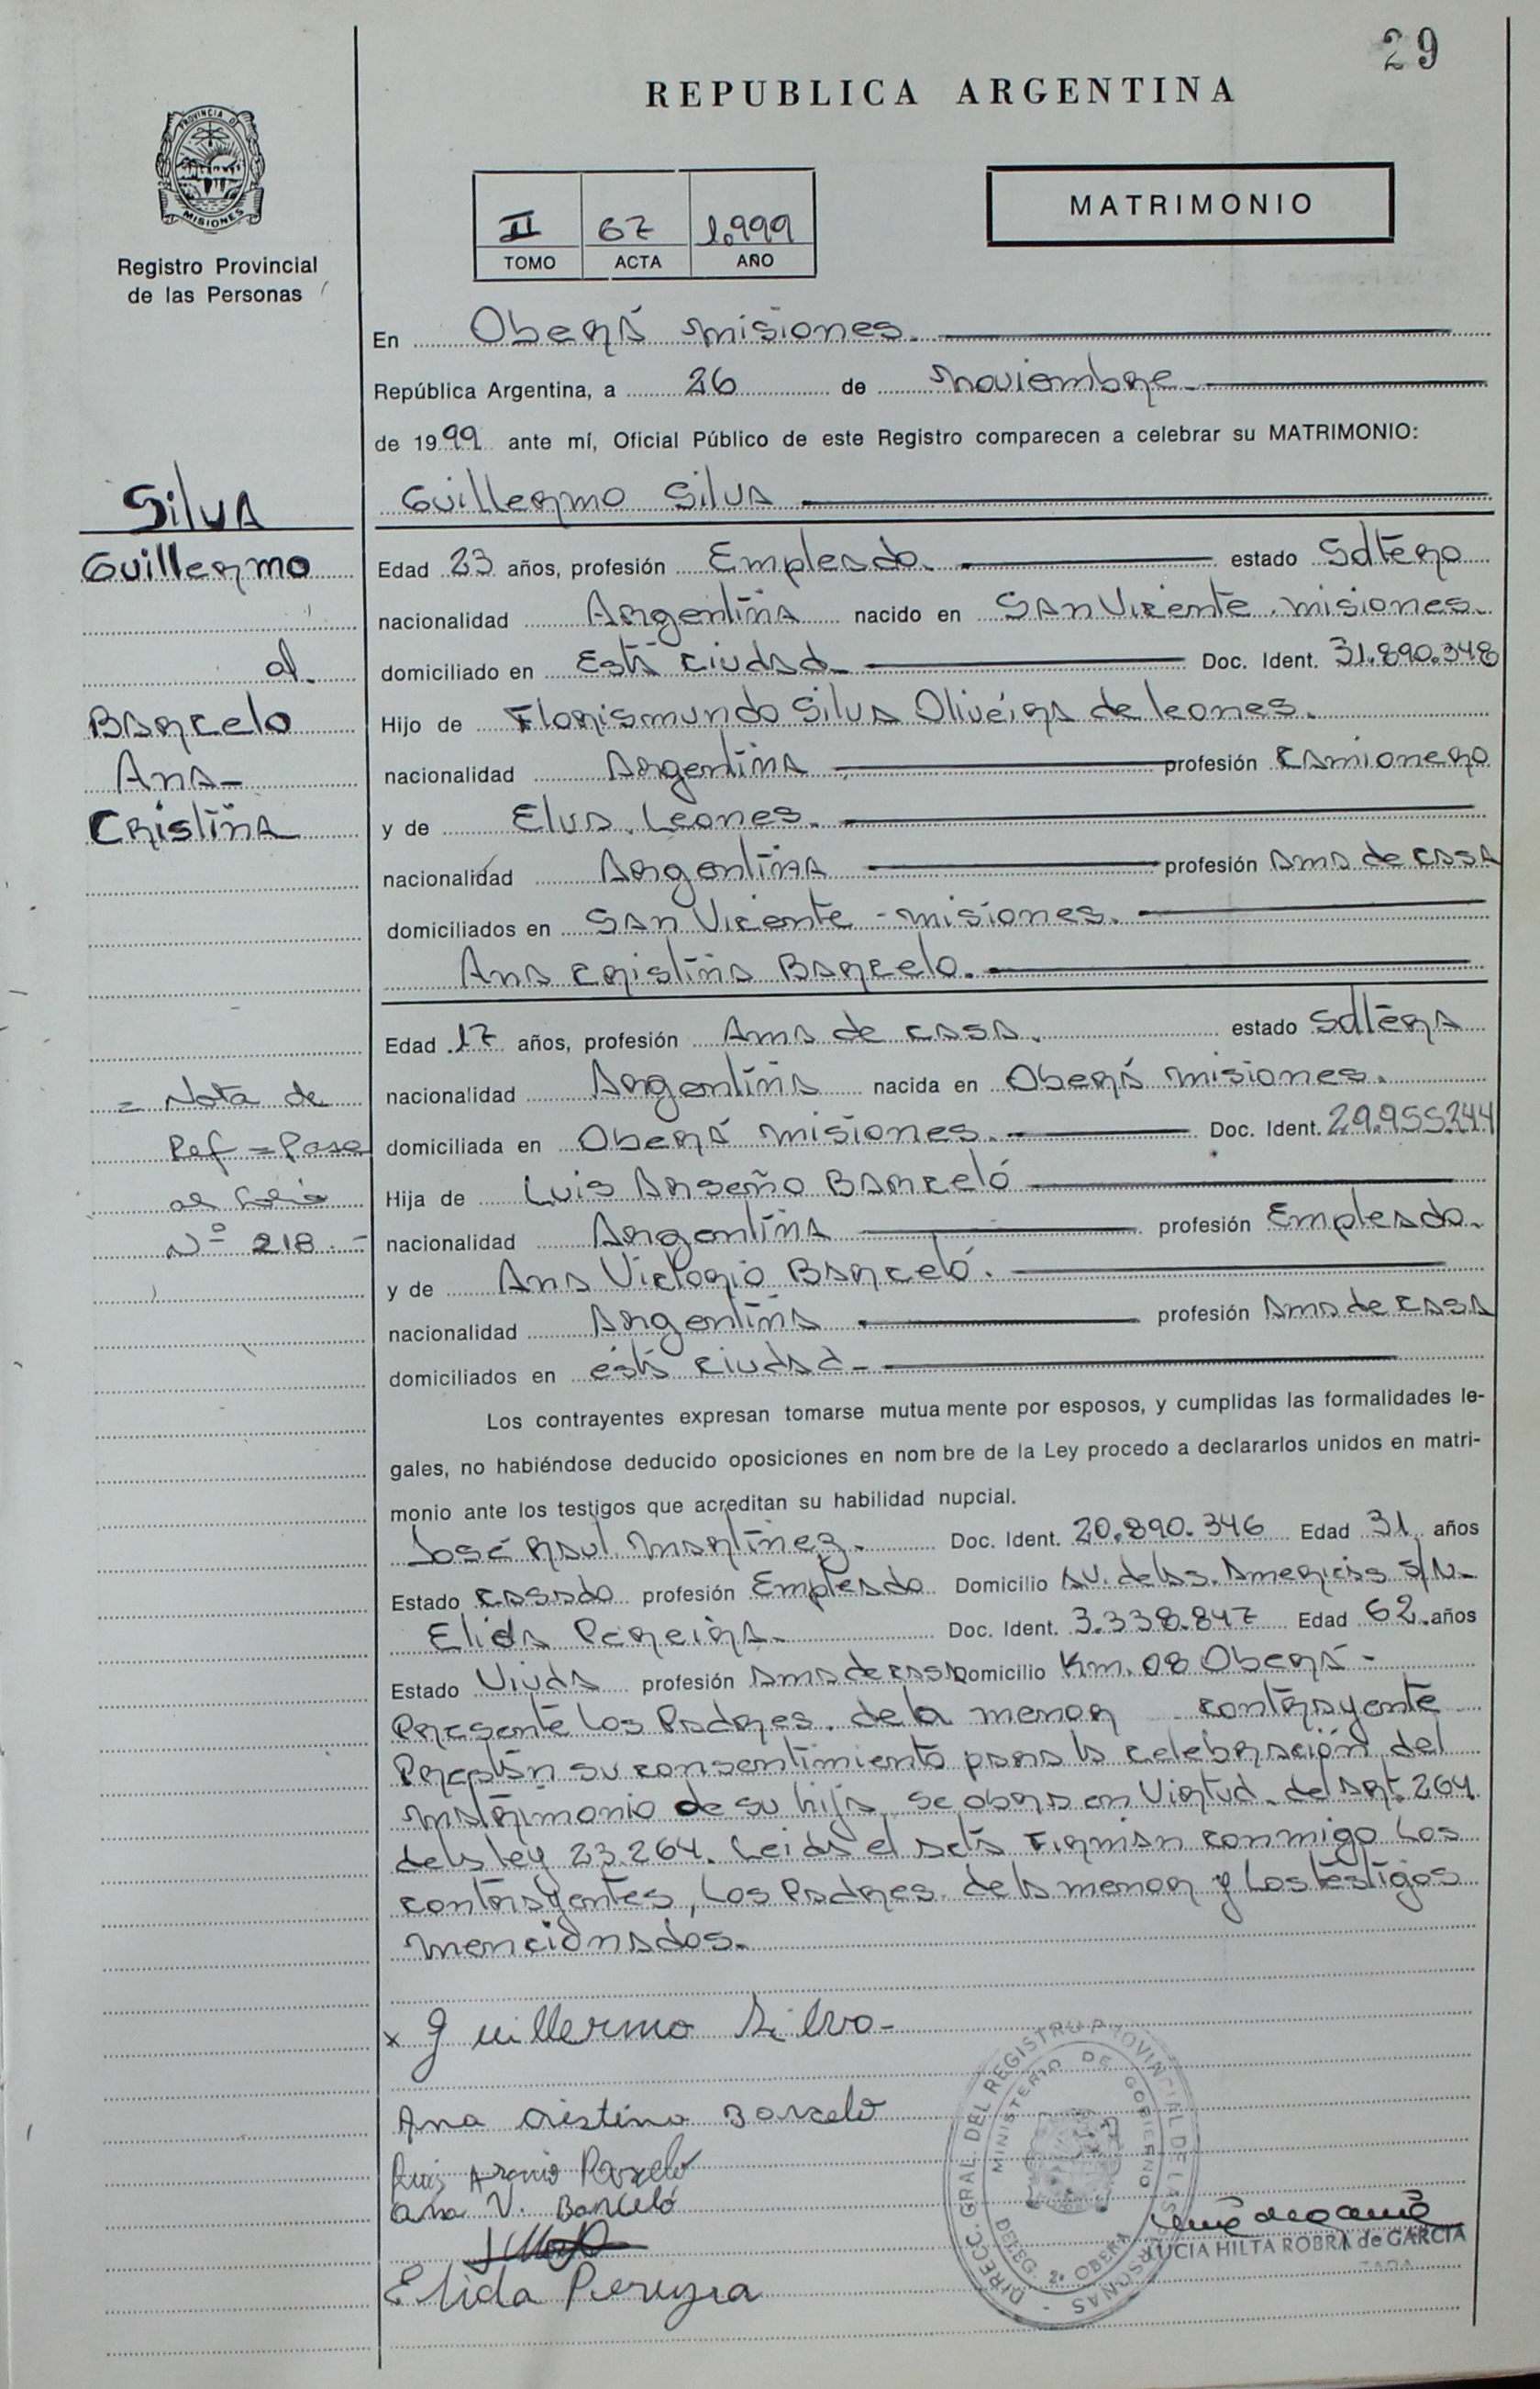 29
REPUBLICA ARGENTINA
PROVINCIA D
MISIONES
Registro Provincial
de las Personas
II 67 1.999
TOMO ACTA AÑO
MATRIMONIO
En Oberá Misiones.
República Argentina, a 26 de Noviembre
de 1999 ante mí, Oficial Público de este Registro comparecen a celebrar su MATRIMONIO:
Guillermo Silva
Edad 23 años, profesión Empleado. estado Soltero
nacionalidad Argentina nacido en San Vicente. Misiones.
domiciliado en Esta ciudad Doc. Ident. 31.890.348
Hijo de Florismundo Silva Oliveira de leones.
nacionalidad Argentina profesión Camionero
y de Elva Leones.
nacionalidad Argentina profesión Ama de casa
domiciliados en San Vicente - Misiones.
Ana Cristina Barcelo.
Edad 17 años, profesión Ama de casa. estado Soltera
nacionalidad Argentina nacida en Oberá Misiones.
domiciliada en Oberá Misiones. Doc. Ident. 29.955.244
Hija de Luis Arseño Barceló
nacionalidad Argentina profesión Empleado.
y de Ana Victorio Barceló.
nacionalidad Argentina profesión Ama de casa
domiciliados en esta ciudad
Los contrayentes expresan tomarse mutuamente por esposos, y cumplidas las formalidades le-
gales, no habiéndose deducido oposiciones en nombre de la Ley procedo a declararlos unidos en matri-
monio ante los testigos que acreditan su habilidad nupcial.
José Raul Martinez. Doc. Ident. 20.890.346 Edad 31 años
Estado casado profesión Empleado Domicilio Av. de las Americas S/N
Elida Pereira. Doc. Ident. 3.338.847 Edad 62 años
Estado Viuda profesión Ama de casa Domicilio Km. 08 Oberá -
Presente los Padres de la menor contrayente
Prestan su consentimiento para la celebración del
matrimonio de su hija, se obra en Virtud del art. 264
de la ley 23.264. Leida el acta Firman conmigo los
contrayentes, los Padres de la menor y los testigos
mencionados.
Silva
Guillermo
Barcelo
Ana-
Cristina
= Nota de
Ref = Pase
al folio
Nº 218.-
x Guillermo Silva-
Ana Cristina Barcelo
Luis Arseño Barcelo
Ana V. Barceló
Elida Pereyra
DIRECC. GRAL. DEL REGISTRO PROVINCIAL DE LAS PERSONAS
MINISTERIO DE GOBIERNO
DELEG. 2ª OBERA
LUCIA HILTA ROBRA de GARCIA